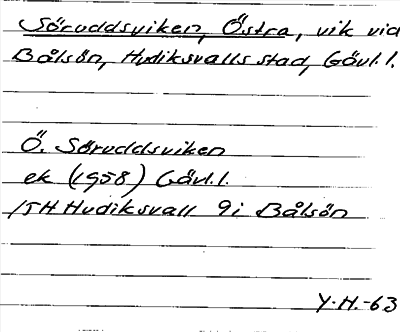 Söruddsviken, Östra, vik vid
Bålsön, Hudiksvalls stad, Gävl.l.
Ö. Söruddsviken
ek (1958) Gävl.l.
15H Hudiksvall 9i Bålsön
Y.H.-63